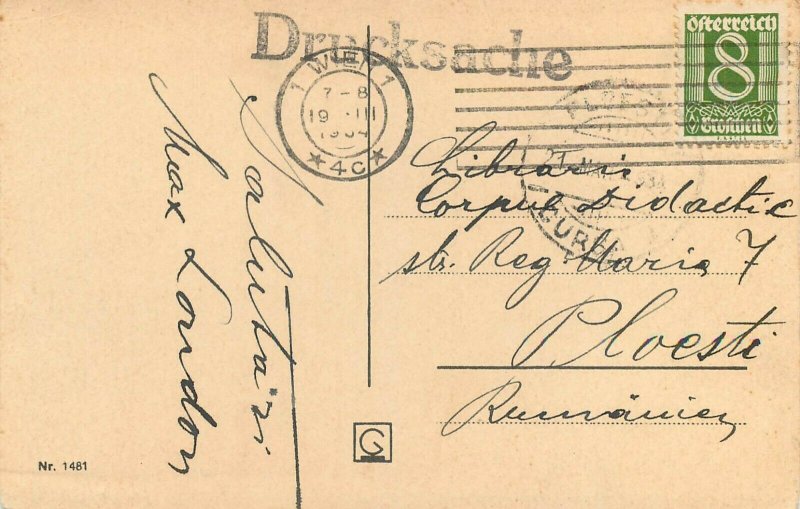 Drucksache
1 WIEN 1
7-8
19. III
1934
* 4c *
Österreich
8
Groschen
Salutări
Max London
Librăriei
Corpul Didactic
str. Reg. Maria 7
Ploesti
Rumänien
G
Nr. 1481